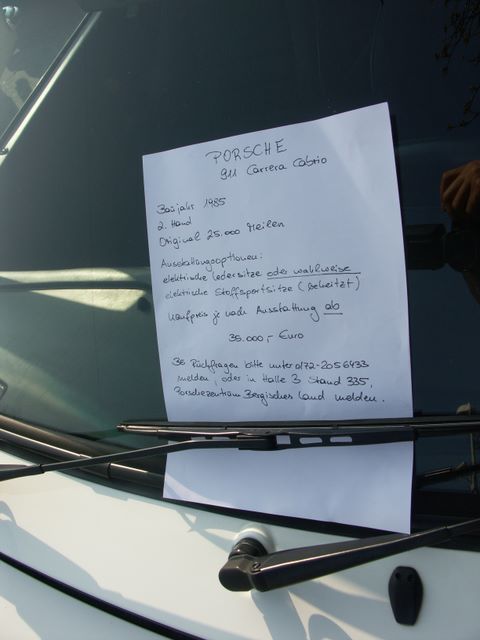 PORSCHE
911 Carrera Cabrio
Baujahr 1985
2. Hand
Original 25.000 Meilen
Ausstattungsoptionen:
elektrische Ledersitze oder wahlweise
elektrische Stoffsportsitze (beheitzt)
Kaufpreis je nach Ausstattung ab
35.000,- Euro
Bei Rückfragen bitte unter 0172-2056433
melden, oder in Halle 3 Stand 335,
Porschezentrum Bergisches Land melden.